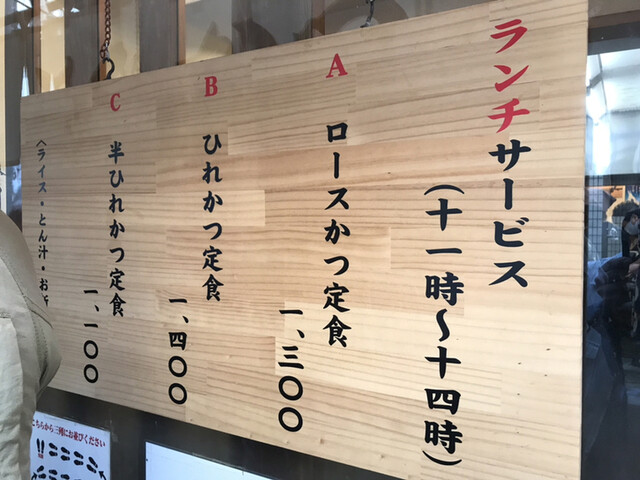 ランチサービス
(十一時~十四時)
A
ロースかつ定食
一、三〇〇
B
ひれかつ定食
一、四〇〇
C
半ひれかつ定食
一、一〇〇
(ライス・とん汁・お
こちらから三列にお並びください